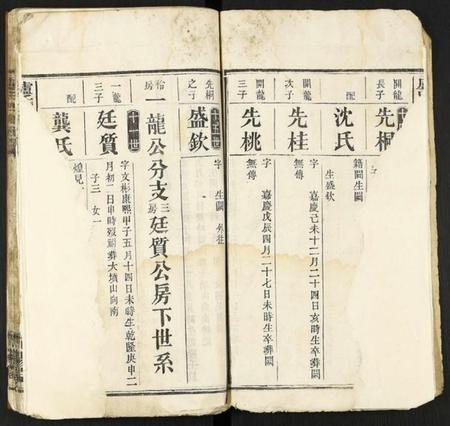 開龍長子
先桐
配
沈氏
籍闕生闕
生盛欽
開龍次子
先桂
字 嘉慶己未十二月二十四日亥時生卒葬闕
無傳
開龍三子
先桃
字 嘉慶戊辰四月二十七日未時生卒葬闕
無傳
先桐之子
盛欽
字 生闕 外往
怡房
一龍公分支三房廷質公房下世系
一龍三子
十一世
廷質
字文彬康熙甲子五月十四日未時生乾隆庚申二
月初二日申時歿葬大墳山向南
配
龔氏
子三 女一